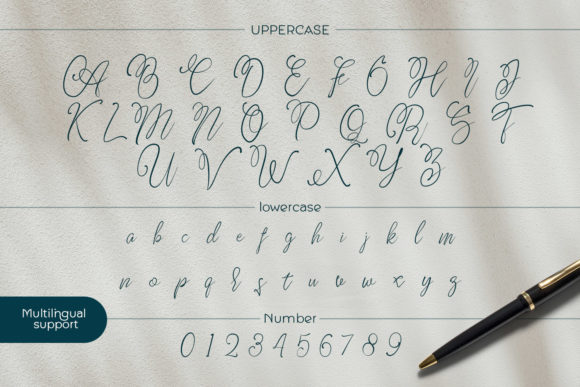 UPPERCASE
A B C D E F G H I J
K L M N O P Q R S T
U V W X Y Z
lowercase
a b c d e f g h i j k l m
n o p q r s t u v w x y z
Multilingual
support
Number
0 1 2 3 4 5 6 7 8 9